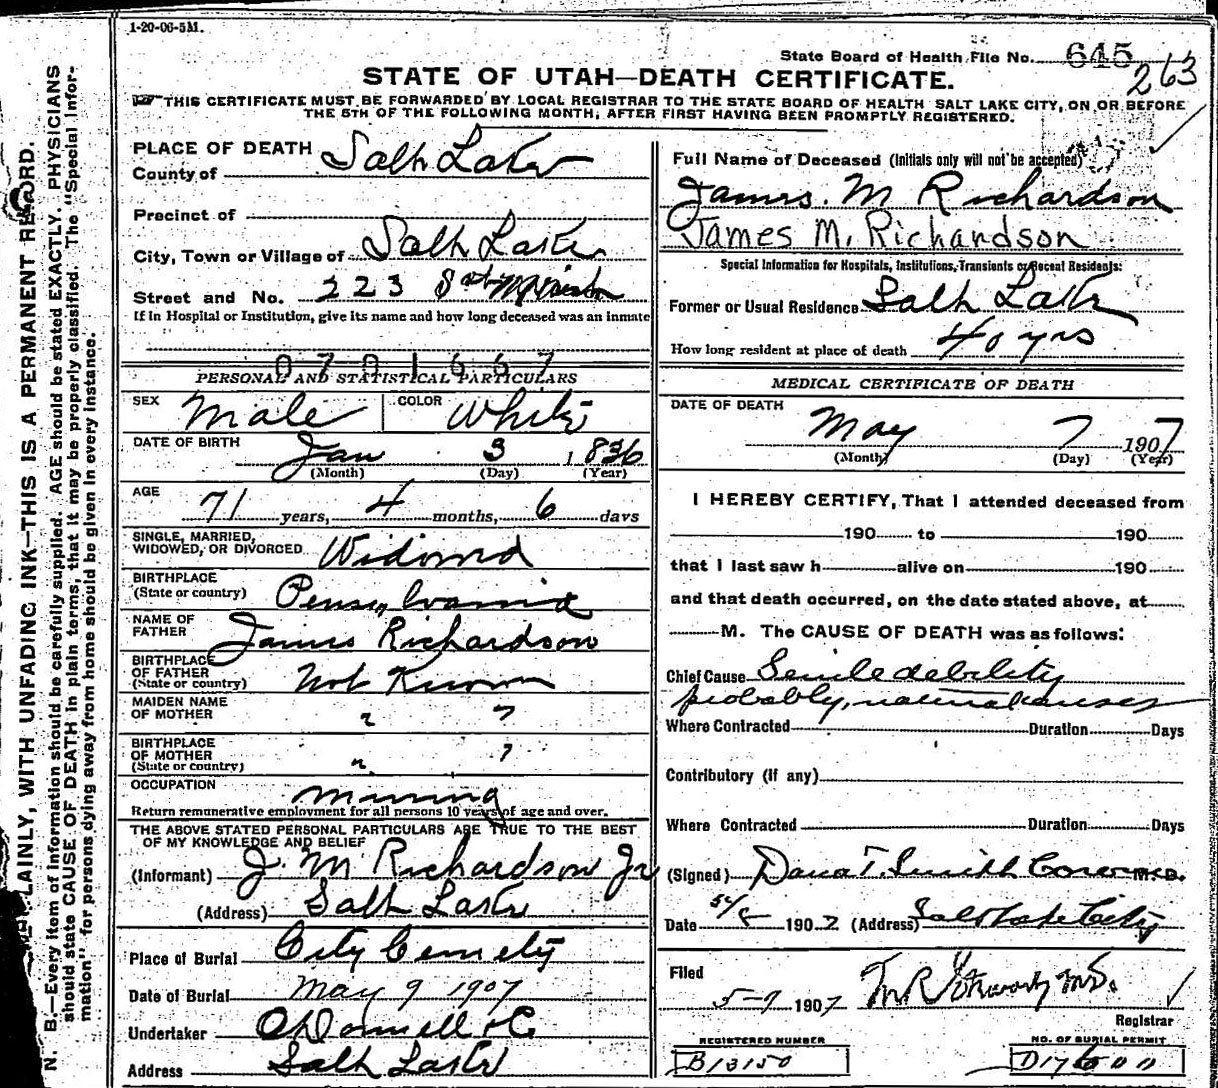 1-20-06-5M.
State Board of Health File No. 645
263
STATE OF UTAH—DEATH CERTIFICATE.
THIS CERTIFICATE MUST BE FORWARDED BY LOCAL REGISTRAR TO THE STATE BOARD OF HEALTH SALT LAKE CITY, ON OR BEFORE
THE 5TH OF THE FOLLOWING MONTH; AFTER FIRST HAVING BEEN PROMPTLY REGISTERED.
LAINLY, WITH UNFADING INK—THIS IS A PERMANENT RECORD.
N. B.—Every item of information should be carefully supplied. AGE should be stated EXACTLY. PHYSICIANS
should state CAUSE OF DEATH in plain terms, that it may be properly classified. The "Special Infor-
mation" for persons dying away from home should be given in every instance.
PLACE OF DEATH
County of Salt Lake
Precinct of
City, Town or Village of Salt Lake
Street and No. 223 So
If in Hospital or Institution, give its name and how long deceased was an inmate
0701667
PERSONAL AND STATISTICAL PARTICULARS
SEX Male COLOR White
DATE OF BIRTH
Jan 3 1836
(Month) (Day) (Year)
AGE
71 years, 4 months, 6 days
SINGLE, MARRIED,
WIDOWED, OR DIVORCED Widowed
BIRTHPLACE
(State or country) Pensylvania
NAME OF
FATHER James Richardson
BIRTHPLACE
OF FATHER
(State or country) Not Known
MAIDEN NAME
OF MOTHER " "
BIRTHPLACE
OF MOTHER
(State or country) " "
OCCUPATION Mining
Return remunerative employment for all persons 10 years of age and over.
THE ABOVE STATED PERSONAL PARTICULARS ARE TRUE TO THE BEST
OF MY KNOWLEDGE AND BELIEF
(Informant) J. M Richardson Jr
(Address) Salt Lake
Place of Burial City Cemety
Date of Burial May 9 1907
Undertaker O'Donnell & Co
Address Salt Lake
Full Name of Deceased (Initials only will not be accepted)
James. M Richardson
James M. Richardson
Special Information for Hospitals, Institutions, Transients or Recent Residents:
Former or Usual Residence Salt Lake
How long resident at place of death 40 yrs
MEDICAL CERTIFICATE OF DEATH
DATE OF DEATH
May 7 1907
(Month) (Day) (Year)
I HEREBY CERTIFY, That I attended deceased from
190 to 190
that I last saw h alive on 190
and that death occurred, on the date stated above, at
M. The CAUSE OF DEATH was as follows:
Chief Cause Senile debility
probably, natural causes
Where Contracted Duration Days
Contributory (if any)
Where Contracted Duration Days
(Signed) Dana T. Smith Coroner M.D.
Date 5/8 1907 (Address) Salt Lake City
Filed
5-9 1907
Registrar
REGISTERED NUMBER
B13150
NO. OF BURIAL PERMIT